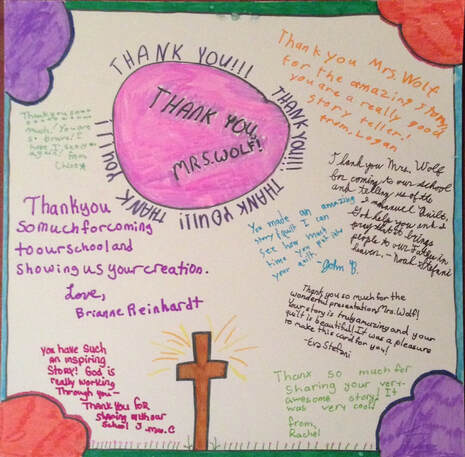 THANK YOU!!!
THANK YOU!!!
THANK YOU!!!
THANK YOU!!!
THANK YOU,
MRS. WOLF!
Thank you Mrs. Wolf
for the amazing story
you are a really good
story teller!
from, Logan
Thank you so
much! You are
so brave! I
hope I see you
again!
from
Thank you Mrs. Wolf
for coming to our school
and telling us of the
Emmanuel Quilt.
God help you and I
pray that it brings
people to our Father in
heaven. - Noah Stefani
You made an amazing
story/quilt I can
see how much
time you put into
your quilt.
John B.
Thank you
so much for coming
to our school and
showing us your creation.
Love,
Brianne Reinhardt
Thank you so much for the
wonderful presentation Mrs. Wolf!
Your story is truly amazing and your
quilt is beautiful! It was a pleasure
to make this card for you!
-Eva Stefani
You have such
an inspiring
STORY! God is
really working
Through you-
Thank You for
sharing with our
school J. Mrs. C
Thanx so much for
sharing your very
awesome story! It
was very cool!
from,
Rachel